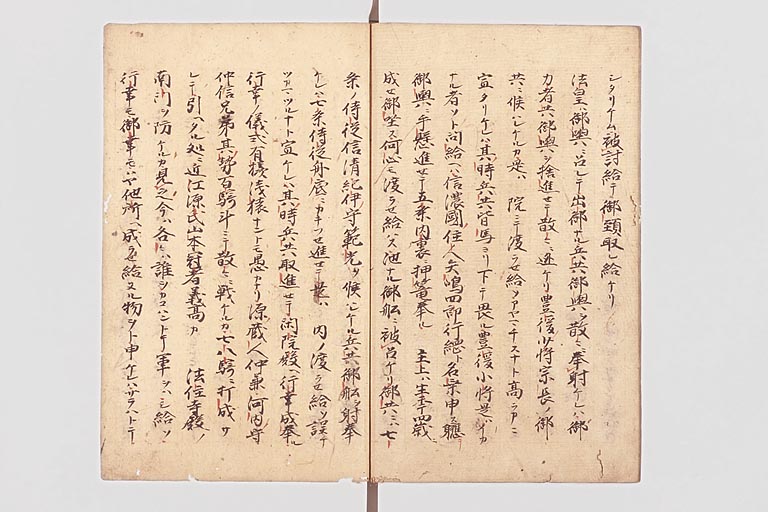 シタリケル被討給テ御頸取レ給ケリ
法皇ハ御輿ニ召レテ出御ナル兵共御輿ヲ散々ニ奉射ケレハ御
力者共御輿ヲ捨進セテ散々ニ逃ケリ豊後少将宗長ノ御
共ニ候ハレケルカ是ハ院ニテ渡ラセ給ソアヤマチスナト高ラカニ
宣タリケレハ其時兵共皆馬ヨリ下テ畏ル豊後小将是ハイカ
ナル者ソト問給ヘハ信濃國住人矢嶋四郎行綱ト名乗申ス聽
御輿ニ手懸進セテ五条内裏ニ押篭奉ル 主上ハ生年四歳
成せ御坐ス何心モ渡ラセ給ハス池ナル御船ニ被召ケリ御共ニハ七
条ノ侍従信清紀伊守範光ソ候ハレケル兵共御船ヲ射奉
ケレハ七条侍従舟底ニ セ進セテ是ハ 内ノ渡ラセ給ソ誤テ
ツカマツルナト宣ケレハ其時兵共取進セテ閑院殿ヘ行幸成奉ル
行幸ノ儀式有様浅猿ナントモ愚カナリ源蔵人仲兼河内守
仲信兄弟其勢百騎斗ニテ散々ニ戦ケルカ七八騎ニ打成サ
レテ引ヘタル処ニ近江源氏山本冠者義高カ 法住寺殿ノ
南門ヲ防ケルカ見之今ハ各々ハ誰ヲカコハントテ軍ヲハシ給ソ
行幸モ御幸モハヤ他所ヘ成セ給ヌル物ヲト申ケレハサラハトテ